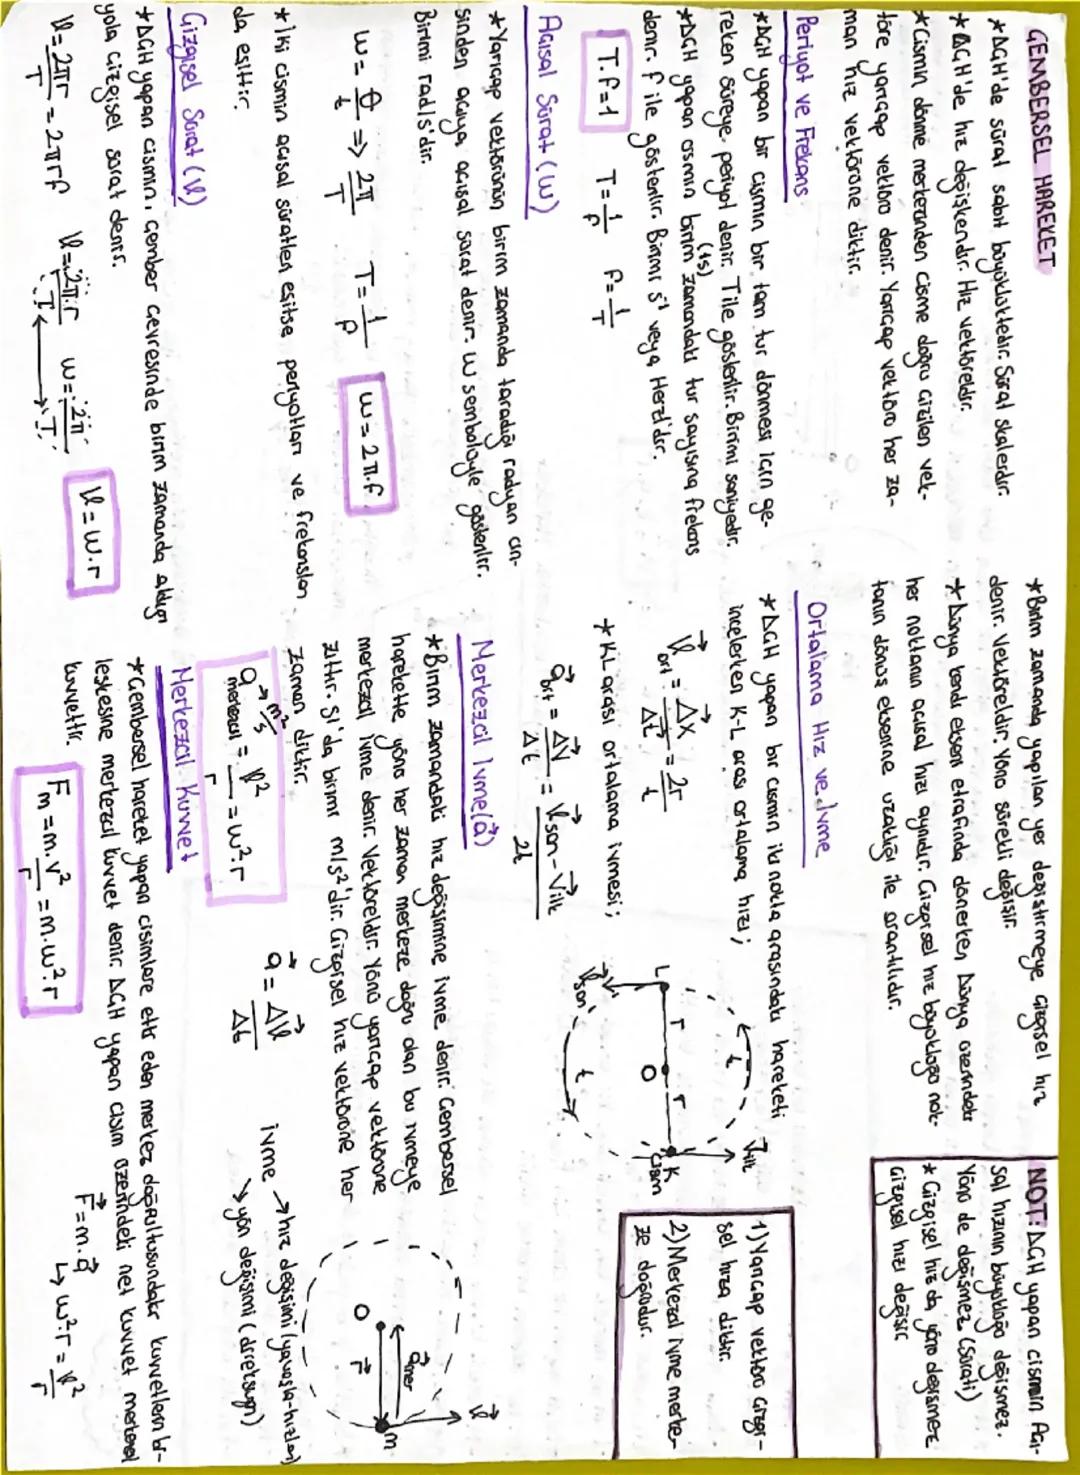 ÇEMBERSEL HAREKET
*DÇH'de sürat sabit büyüklüktedir. Sürat skalerdir.
*DÇH'de hız değişkendir. Hız vektöreldir.
*Cismin dönme merkezinden cisme doğru çizilen vek-
töre yarıçap vektörü denir. Yarıçap vektörü her za-
man hız vektörüne diktir.
Periyot ve Frekans
*DÇH yapan bir cismin bir tam tur dönmesi için ge-
reken süreye periyot denir. T ile gösterilir. Birimi saniyedir.
(1s)
*DÇH yapan cismin birim zamandaki tur sayısına frekans
denir. f ile gösterilir. Birimi s⁻¹ veya Hertz'dir.
T.f=1 T=1/f f=1/T
Açısal Sürat (w)
*Yarıçap vektörünün birim zamanda taradığı radyan cin-
sinden açıya açısal sürat denir. w sembolüyle gösterilir.
Birimi rad/s'dir.
w=θ/t => 2π/T T=1/f w=2π.f
*İki cismin açısal süratleri eşitse periyotları ve frekansları
da eşittir.
Çizgisel Sürat (V)
*DÇH yapan cismin, çember çevresinde birim zamanda aldığı
yola çizgisel sürat denir.
V=2πr/T = 2πrf V=2π.r/T w=2π/T V=w.r
*Birim zamanda yapılan yer değiştirmeye çizgisel hız
denir. Vektöreldir. Yönü sürekli değişir.
*Dünya kendi eksen etrafında dönerken Dünya üzerindeki
her noktanın açısal hızı aynıdır. Çizgisel hız büyüklüğü nok-
tanın dönüş eksenine uzaklığı ile orantılıdır.
Ortalama Hız ve İvme
*DÇH yapan bir cismin iki nokta arasındaki hareketi
incelerken K-L arası ortalama hızı;
V⃗ort = ΔX⃗/Δt = 2r/t
*KL arası ortalama ivmesi;
a⃗ort = ΔV⃗/Δt = V⃗son - V⃗ilk/2t
t
V⃗ilk
L r O r K
Cisim
V⃗son
t
Merkezcil İvme (a⃗)
*Birim zamandaki hız değişimine ivme denir. Çembersel
harekette yönü her zaman merkeze doğru olan bu ivmeye
merkezcil ivme denir. Vektöreldir. Yönü yarıçap vektörüne
zıttır. SI'da birimi m/s²'dir. Çizgisel hız vektörüne her
zaman diktir.
a merkezcil = V²/r = w².r
a⃗ = ΔV⃗/Δt
ivme → hız değişimi (yavaşla-hızlan)
→ yön değişimi (direksiyon)
O r⃗ m
a⃗mer
V⃗
Merkezcil Kuvvet
*Çembersel hareket yapan cisimlere etki eden merkez doğrultusundaki kuvvetlerin bi-
leşkesine merkezcil kuvvet denir. DÇH yapan cisim üzerindeki net kuvvet merkezcil
kuvvettir.
Fm=m.v²/r=m.w².r
F⃗=m.a⃗
↳ w².r=V²/r
NOT: DÇH yapan cismin açı-
sal hızının büyüklüğü değişmez.
Yönü de değişmez (sürati)
*Çizgisel hız da yönü değişirse
çizgisel hızı değişir.
1)Yarıçap vektörü çizgi-
sel hıza diktir.
2)Merkezcil ivme merke-
ze doğrudur.